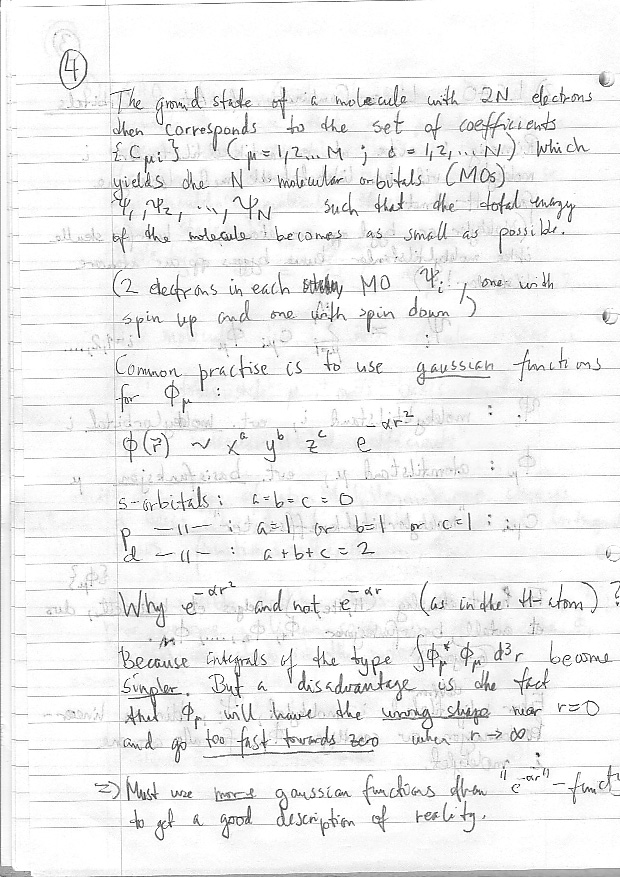 4
The ground state of a molecule with 2N electrons
then corresponds to the set of coefficients
{Cμi} (μ=1,2...M ; i = 1,2,...N) which
yields the N molecular orbitals (MOs)
Ψ1, Ψ2, ..., ΨN such that the total energy
of the molecule becomes as small as possible.
(2 electrons in each MO Ψi, one with
spin up and one with spin down)
Common practise is to use gaussian functions
for Φμ :
ϕ(r⃗) ~ x^a y^b z^c e^{-αr²}
s-orbitals : a=b=c=0
p —"— : a=1 or b=1 or c=1
d —"— : a+b+c=2
Why e^{-αr²} and not e^{-αr} (as in the H-atom) ?
Because integrals of the type ∫Φμ* Φμ d³r become
simpler. But a disadvantage is the fact
that Φμ will have the wrong shape near r=0
and go too fast towards zero when r→∞
=> Must use more gaussian functions than "e^{-αr}"-funct
to get a good description of reality.